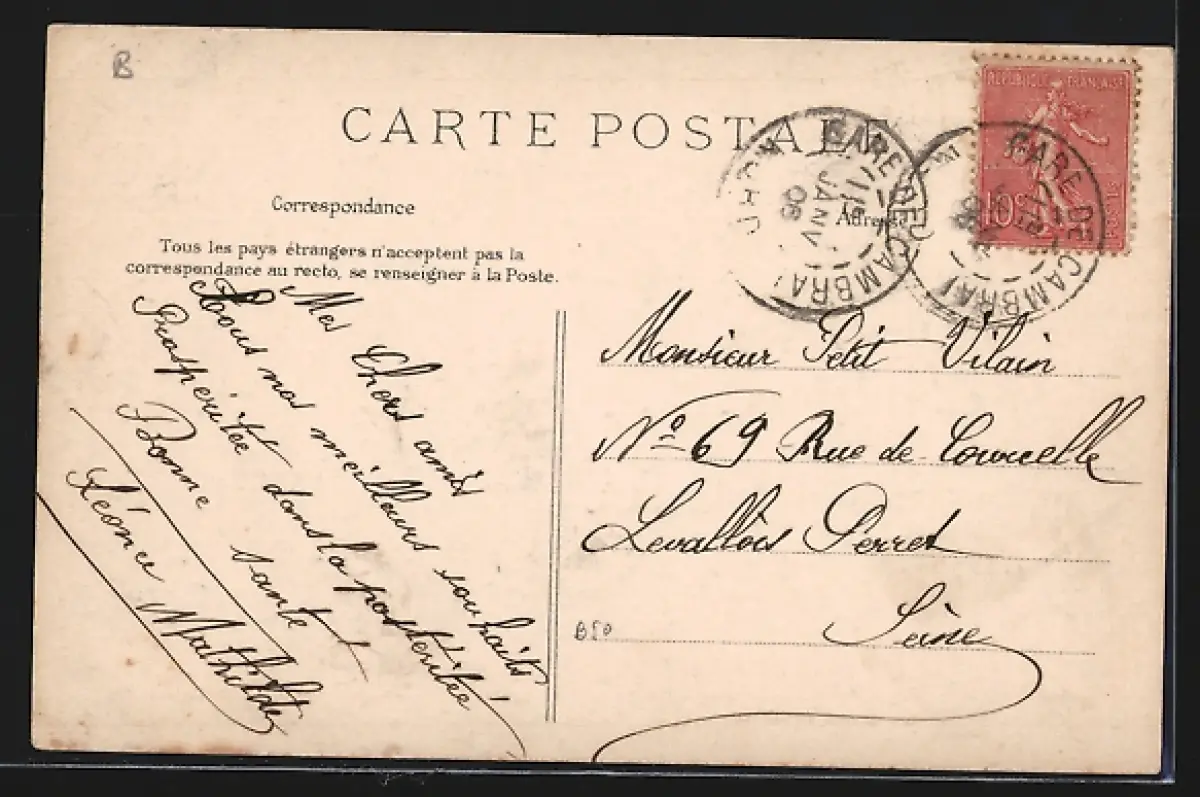 B
CARTE POSTALE
Correspondance
Adresse
Tous les pays étrangers n'acceptent pas la
correspondance au recto, se renseigner à la Poste.
REPUBLIQUE FRANÇAISE
10
POSTES
GARE DE CAMBRAI
JANV
06
GARE DE CAMBRAI
Mes Chers amis
Tous nos meilleurs souhaits
Prospéritée dans la postérité
Bonne santé
Léonce Mathilde
Monsieur Petit Vilain
No 69 Rue de Courcelle
Levallois Perret
Seine
B50